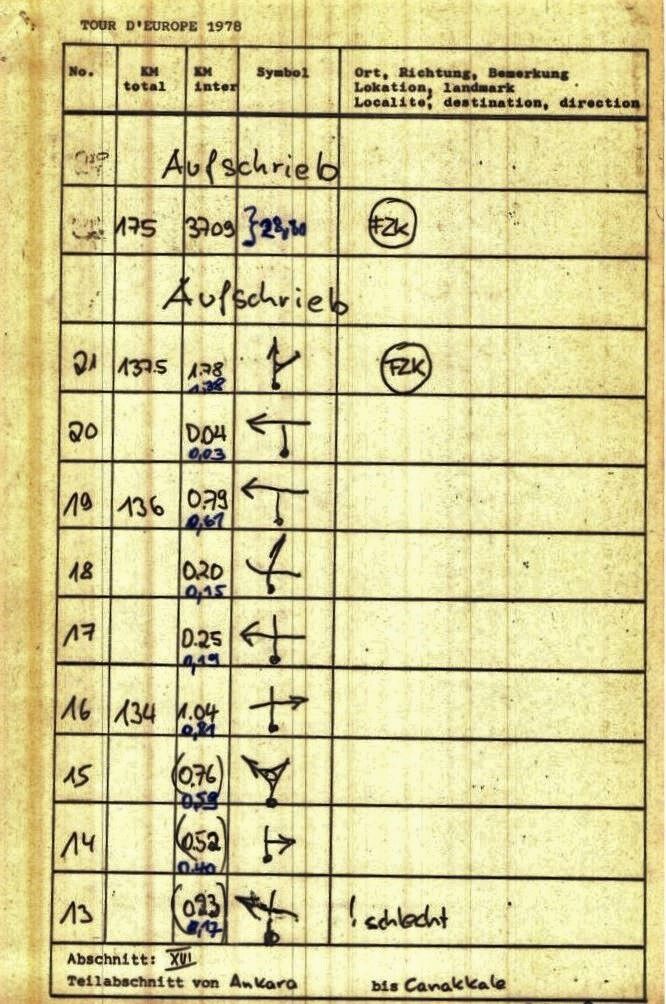 TOUR D'EUROPE 1978
No. KM total KM inter Symbol Ort, Richtung, Bemerkung
Lokation, landmark
Localite, destination, direction
Aufschrieb
175 3709 FZK
Aufschrieb
21 137.5 1.78 FZK
20 0.04
0,03
19 136 0.79
0,61
18 0.20
0,15
17 0.25
0,19
16 134 1.04
0,81
15 (0.76)
0,59
14 (0.52)
0.40
13 (0.23) ! schlecht
0,17
Abschnitt: XVI
Teilabschnitt von Ankara bis Canakkale